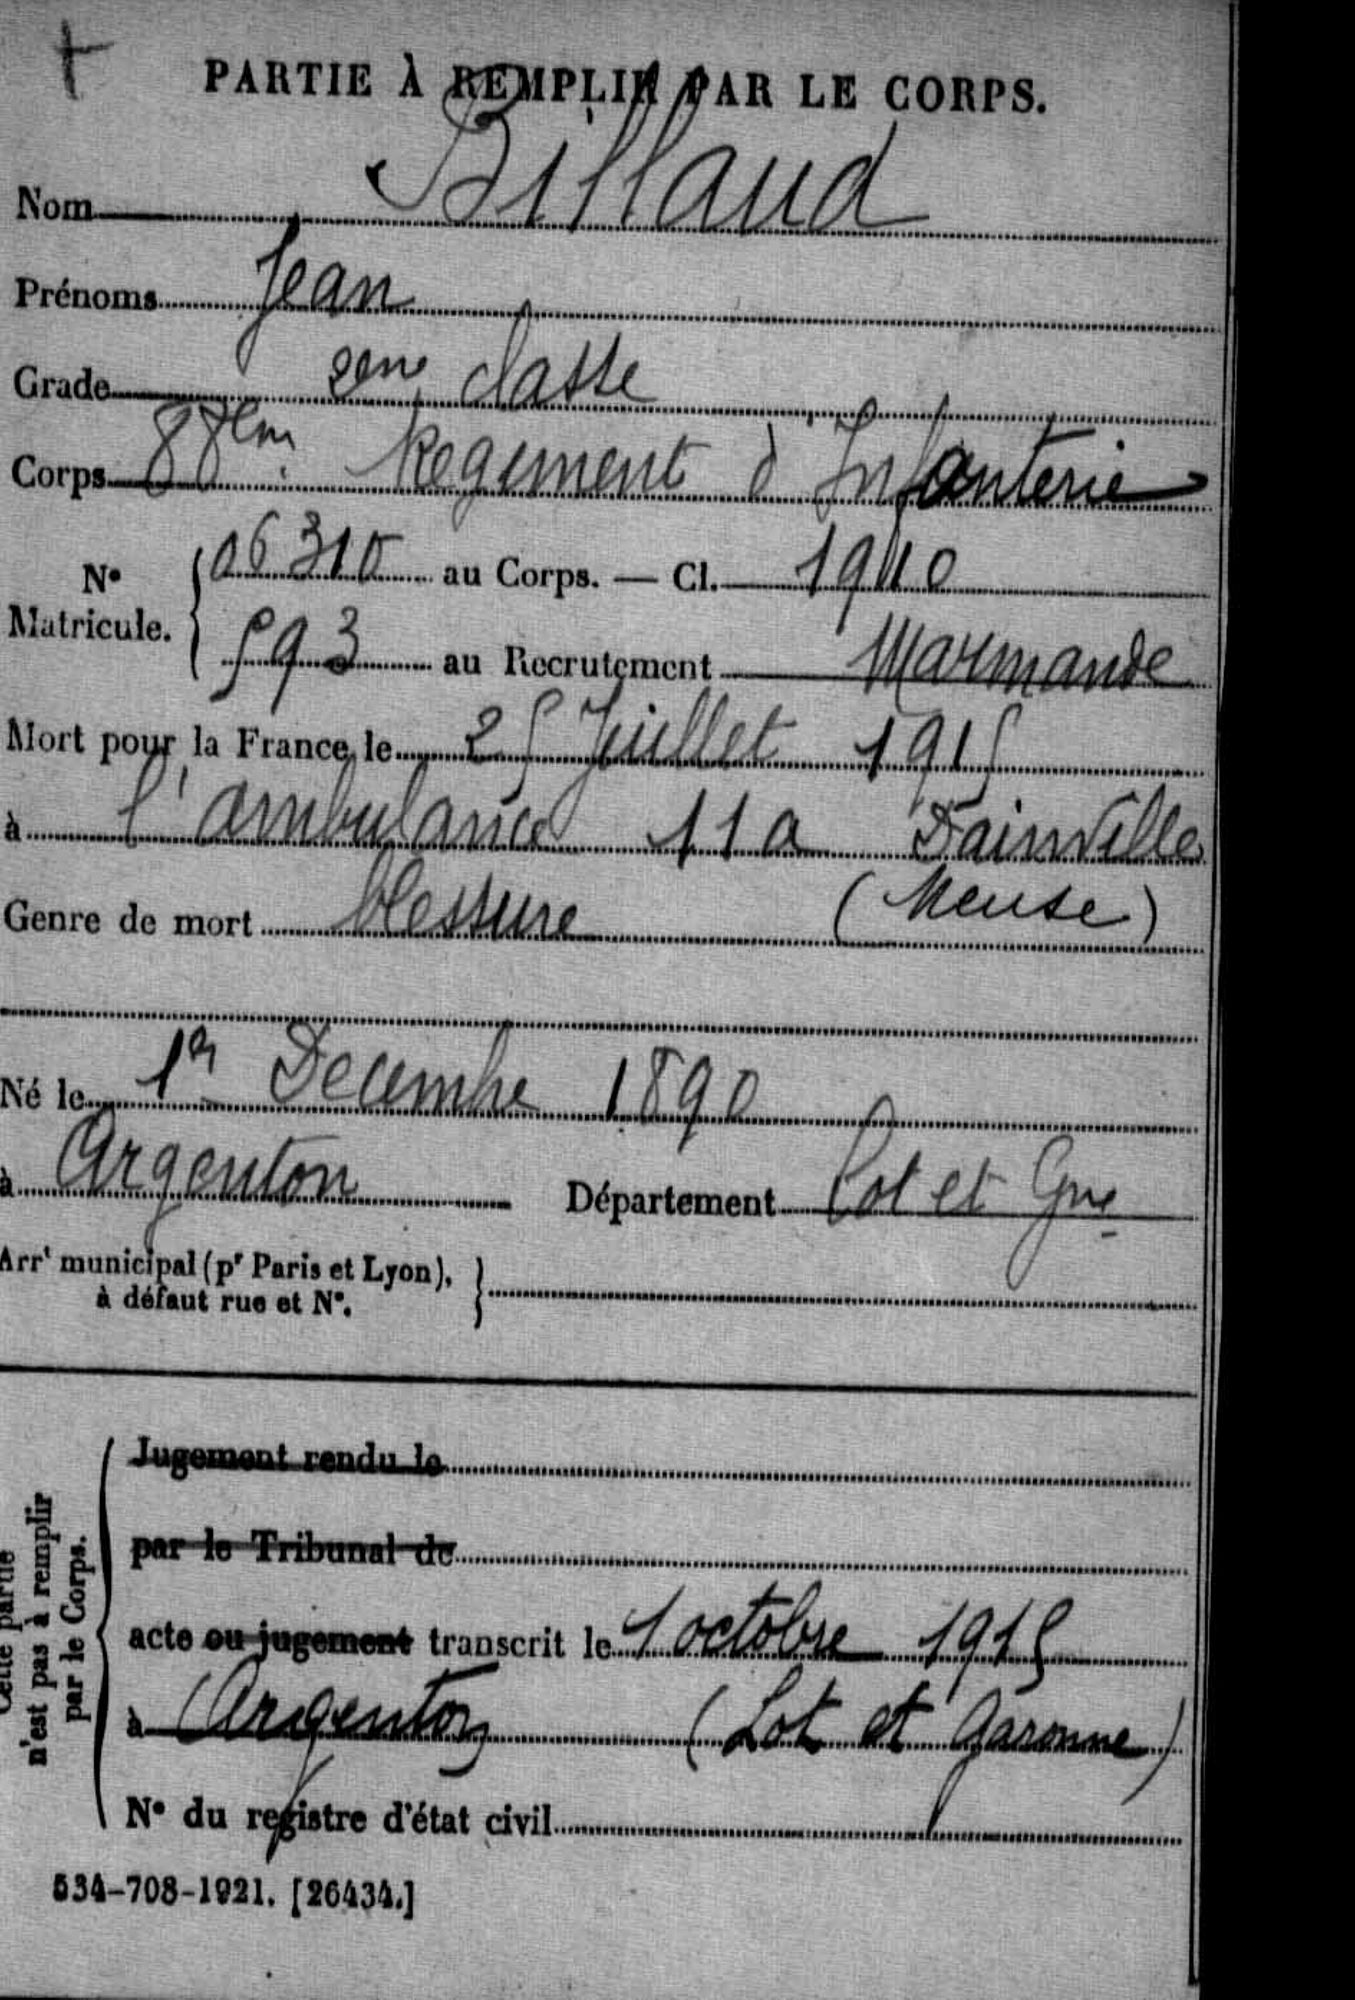 PARTIE À REMPLIR PAR LE CORPS.
Nom Billaud
Prénoms Jean
Grade 2eme classe
Corps 88em Regiment d'Infanterie
N° Matricule. 06310 au Corps. — Cl. 1910
593 au Recrutement Marmande
Mort pour la France le 25 Juillet 1915
à l'ambulance 11 a Dainville
Genre de mort blessure (Meuse)
Né le 1er Decembre 1890
à Argenton Département Lot et Gne
Arrt municipal (pr Paris et Lyon),
à défaut rue et N°.
Cette partie
n'est pas à remplir
par le Corps.
Jugement rendu le
par le Tribunal de
acte ou jugement transcrit le 1 octobre 1915
à Argenton (Lot et Garonne)
N° du registre d'état civil
534-708-1921. [26434.]